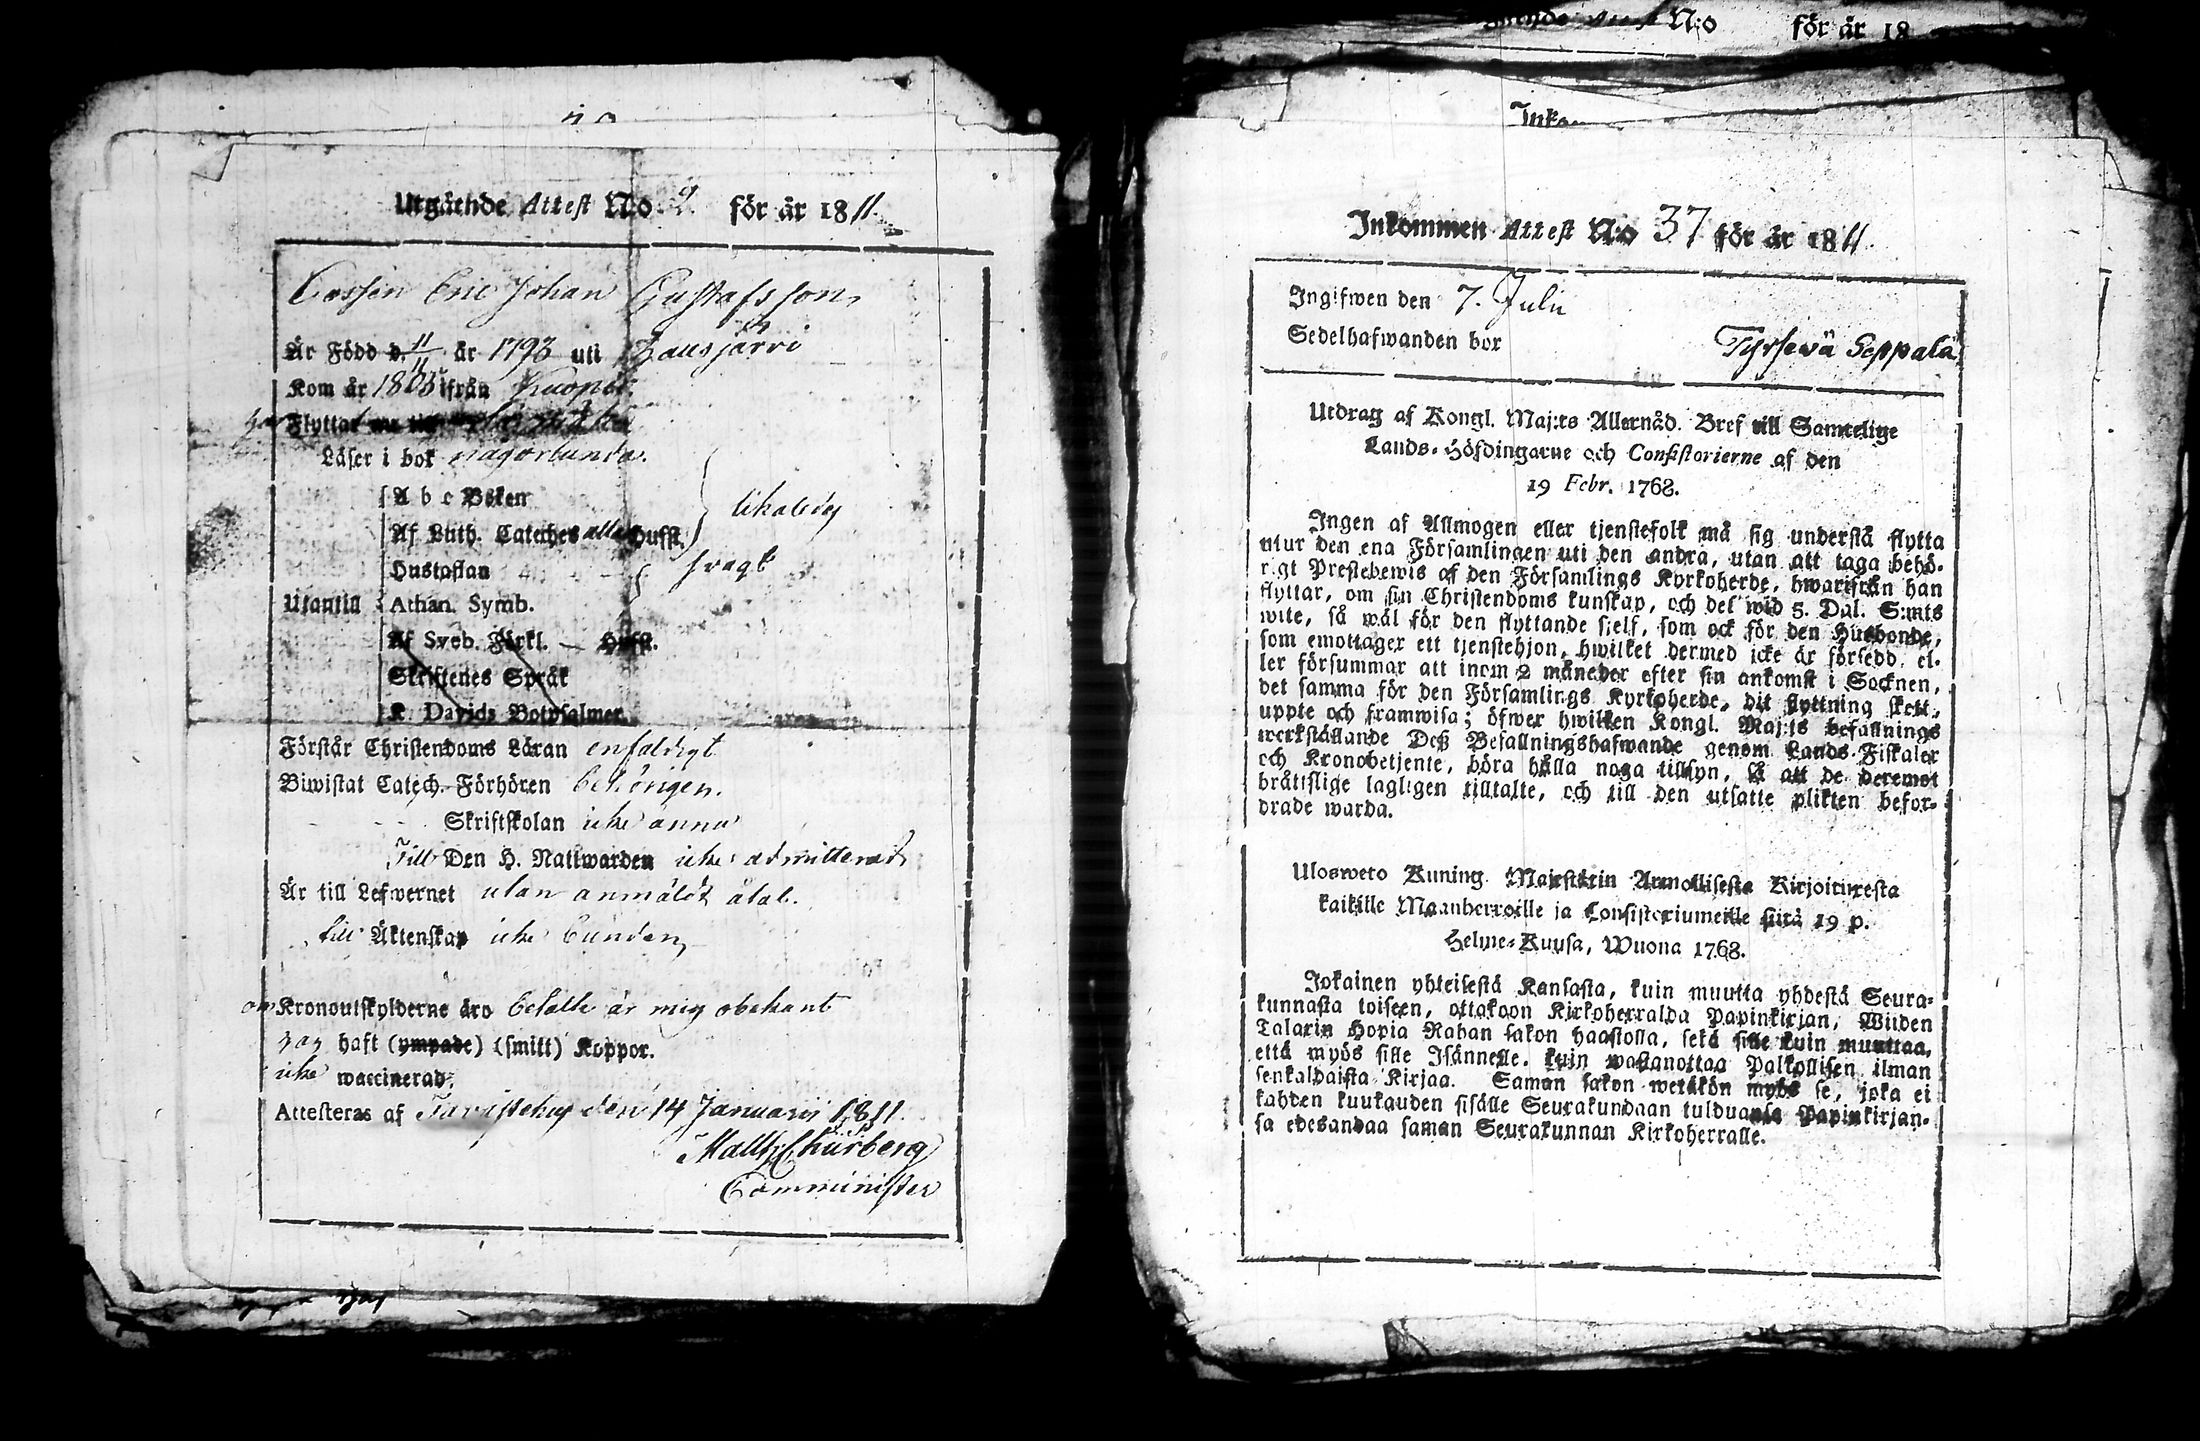 Utgående Attest N:o 9 för år 1811.
Gossen Eric Johan Gustafsson
Är Född d. 11/11 år 1793 uti Hausjärvi
Kom år 1805 ifrån Kuopio
Flyttat nu till
Läser i bok någorlunda.
A b c Boken
Af Luth. Cateches alla Hufst. likaledes
Hustaflan svagt
Utantill Athan. Symb.
Af Sveb. Förkl. — Hufst.
Skriftenes Språk
K. Davids Botpsalmer.
Förstår Christendoms Läran enfaldigt
Biwistat Catech. Förhören behörigen.
Skriftskolan icke ännu
Till Den H. Nattwarden icke admitterad
Är till Lefvernet utan anmäldt åtal.
till Äktenskap icke bunden,
om Kronoutskylderne äro betalte är mig obekant
haft (ympade) (smitt) Koppor.
icke waccinerad.
Attesteras af Tavastehus den 14 Januarii 1811.
Matth. Chürberg
Comminister
gående Attest N:o för år 18
Inko
Inkommen Attest N:o 37 för år 1811.
Ingifwen den 7. Julii
Sedelhafwanden bor Tyrsevä Seppälä
Utdrag af Kongl. Maj:ts Allernåd. Bref till Samtelige
Lands-Höfdingarne och Consistorierne af den
19 Febr. 1768.
Ingen af Allmogen eller tjenstefolk må sig understå flytta
utur den ena Församlingen uti den andra, utan att taga behö-
rigt Prestebewis af den Församlings Kyrkoherde, hwarifrån han
flyttar, om sin Christendoms kunskap, och det wid 5. Dal. S:mts
wite, så wäl för den flyttande sjelf, som ock för den Husbonde,
som emottager ett tjenstehjon, hwilket dermed icke är försedd, el-
ler försummar att inom 2 månader efter sin ankomst i Socknen,
det samma för den Församlings Kyrkoherde, dit flyttning skett,
uppte och framwisa; öfwer hwilken Kongl. Maj:ts befallnings
werkställande Deß Befallningshafwande genom Lands-Fiskaler
och Kronobetjente, böra hålla noga tillsyn, så att de deremot
bråttslige lagligen tilltalte, och till den utsatte plikten befor-
drade warda.
Ulosweto Kuning. Majestätin Armollisesta Kirjoituxesta
kaikille Maanherroille ja Consistoriumeille siitä 19 p.
Helme-Kuusa, Wuona 1768.
Jokainen yhteisestä Kansasta, kuin muutta yhdestä Seura-
kunnasta toiseen, ottakoon Kirkoherralda Papinkirjan, Wiiden
Talarin Hopia Rahan sakon haastolla, sekä sille kuin muuttaa,
että myös sille Isännelle, kuin wastanottaa Palkollisen ilman
senkaldaista Kirjaa. Saman sakon wetäkön myös se, joka ei
kahden kuukauden sisälle Seurakundaan tulduansa Papinkirjan-
sa edesandaa saman Seurakunnan Kirkoherralle.